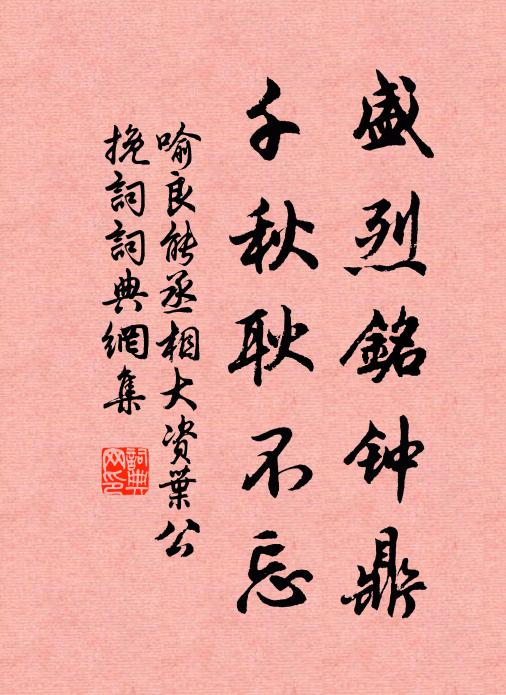 盛烈銘钟鼎
千秋耿不忘
喻良能丞相大资葉公
挽詞詞典網集
詞典网印